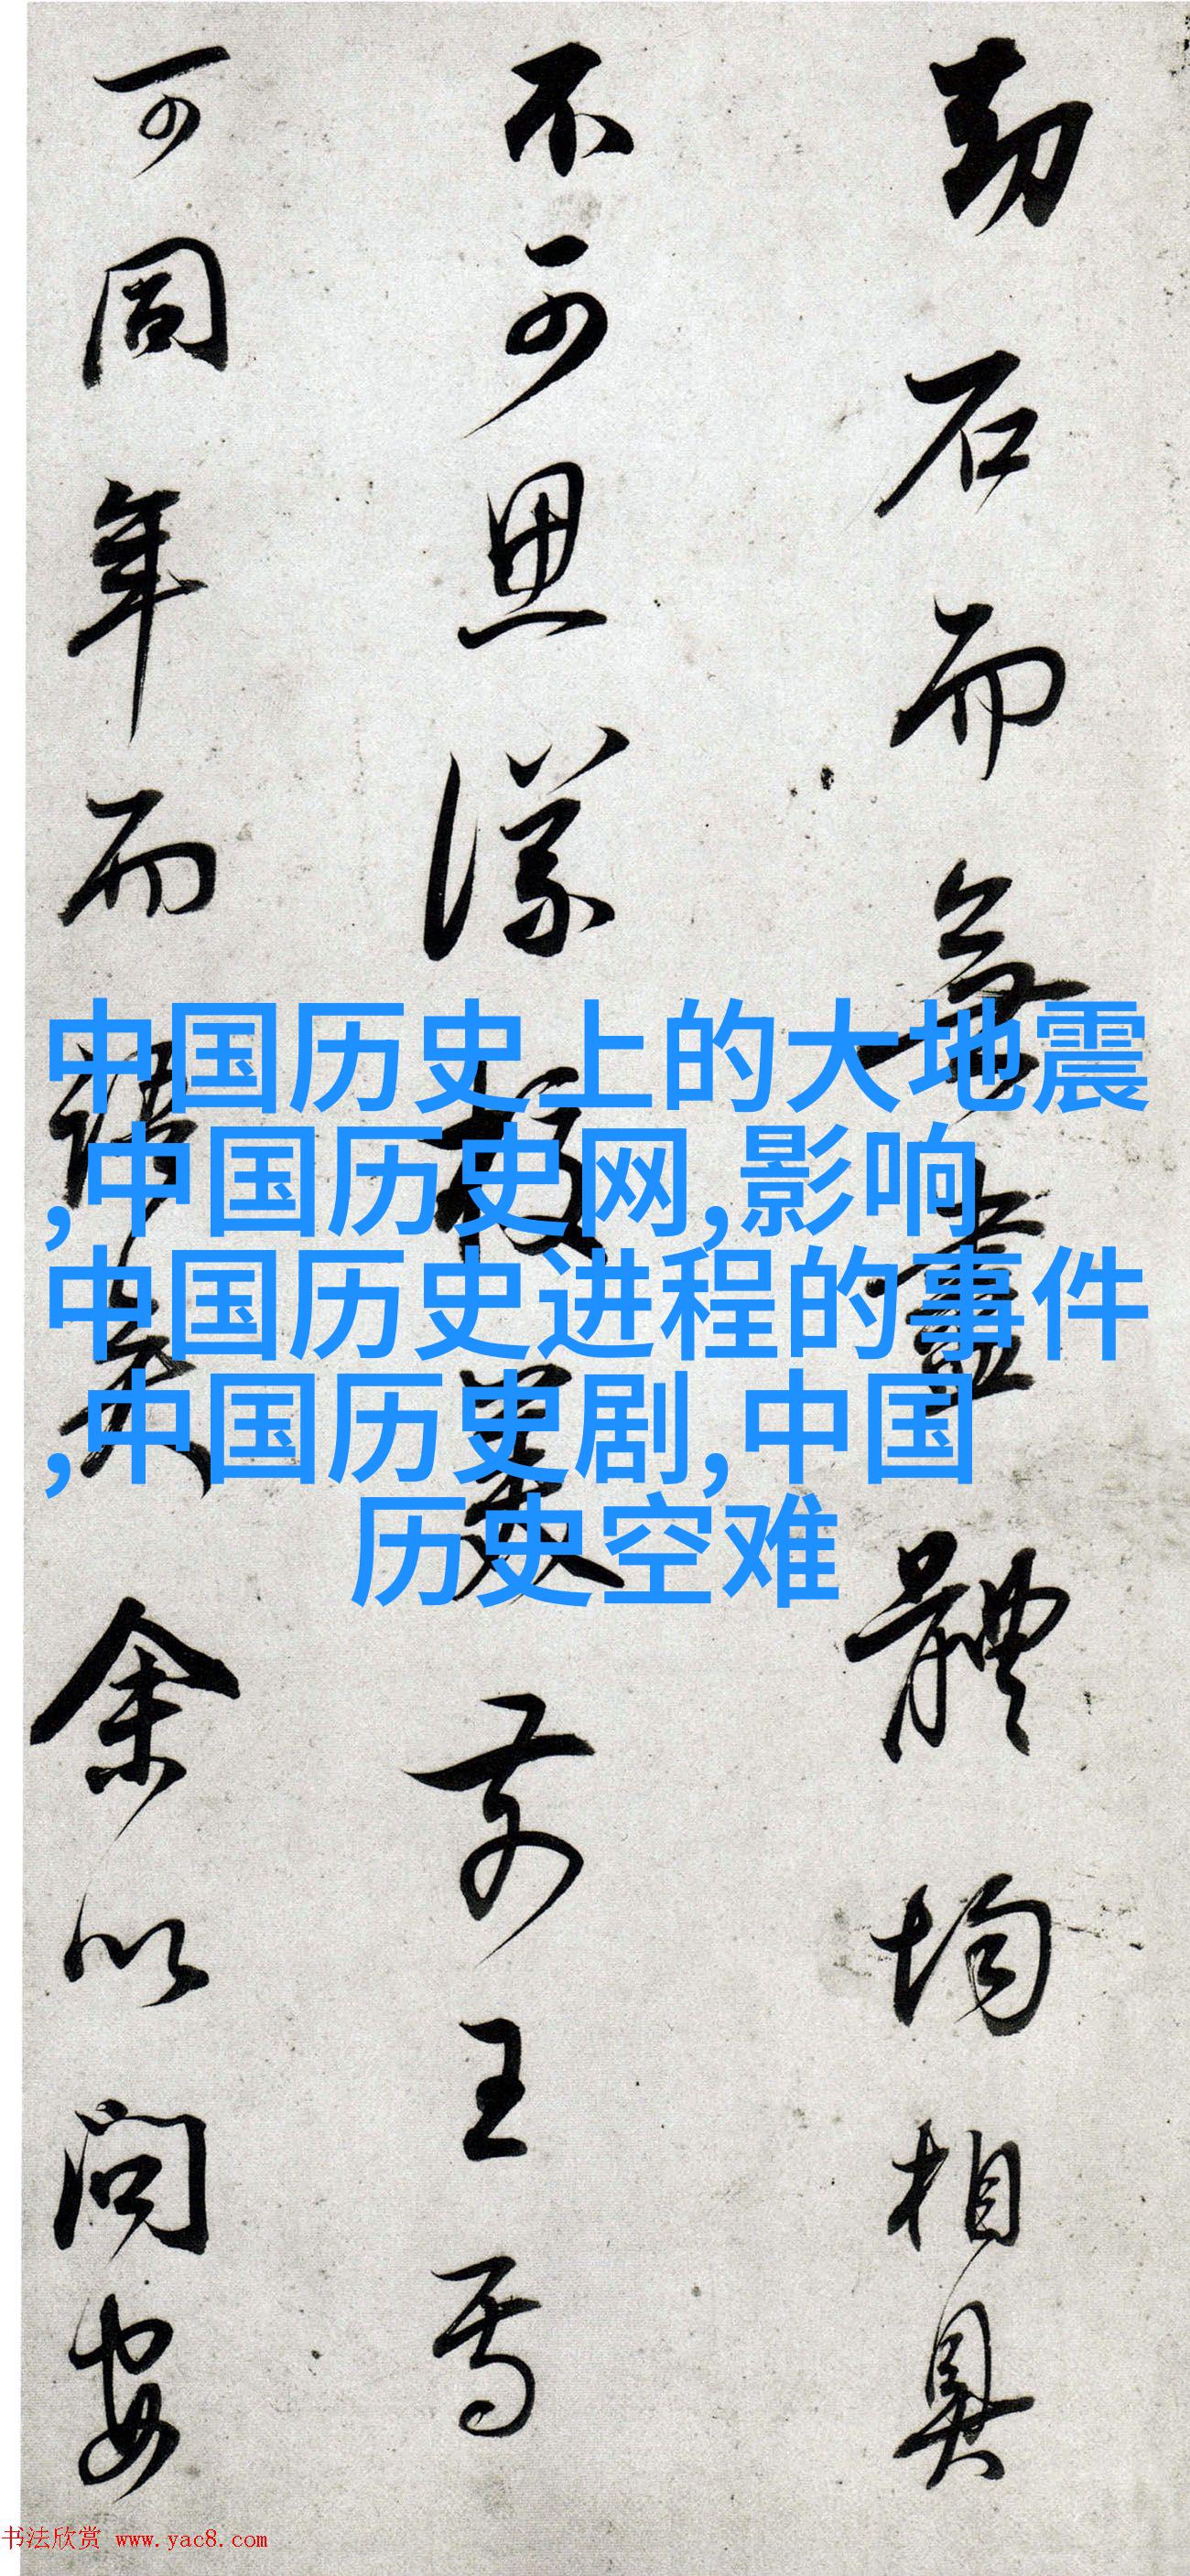 劫石而無盡體均相具
不可思議校量前王焉
可同年而語矣余以問安
中国历史上的大地震
,中国历史网,影响
中国历史进程的事件
,中国历史剧,中国
历史空难
书法欣赏 www.yac8.com